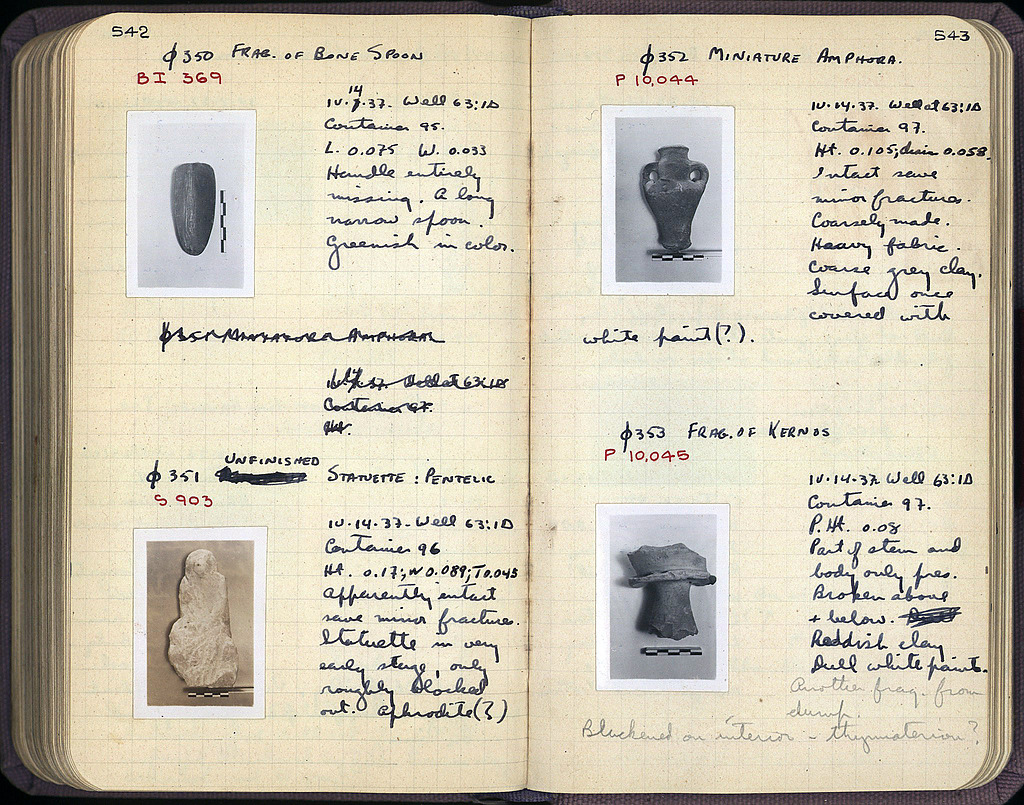 542
ϕ350 FRAG. OF BONE SPOON
BI 369
14
IV.7.37. Well 63:1D
Container 95.
L. 0.075 W. 0.033
Handle entirely
missing. A long
narrow spoon.
Greenish in color.
ϕ351 MINIATURE AMPHORA
IV.14.37. Well at 63:1D
Container 97.
Ht.
UNFINISHED
ϕ351 STATUETTE : PENTELIC
S 903
IV.14.37. Well 63:1D
Container 96
Ht. 0.17; W 0.089; T 0.045
Apparently intact
save minor fractures.
Statuette in very
early stage, only
roughly blocked
out. Aphrodite(?)
543
ϕ352 MINIATURE AMPHORA.
P 10,044
IV.14.37. Well at 63:1D
Container 97.
Ht. 0.105; diam 0.058.
Intact save
minor fractures.
Coarsely made.
Heavy fabric.
Coarse grey clay.
Surface once
covered with
white paint(?).
ϕ353 FRAG. OF KERNOS
P 10,045
IV.14.37. Well 63:1D
Container 97.
P. Ht. 0.08
Part of stem and
body only pres.
Broken above
+ below.
Reddish clay
Dull white paint.
Another frag. from
dump.
Blackened on interior - thymiaterion?